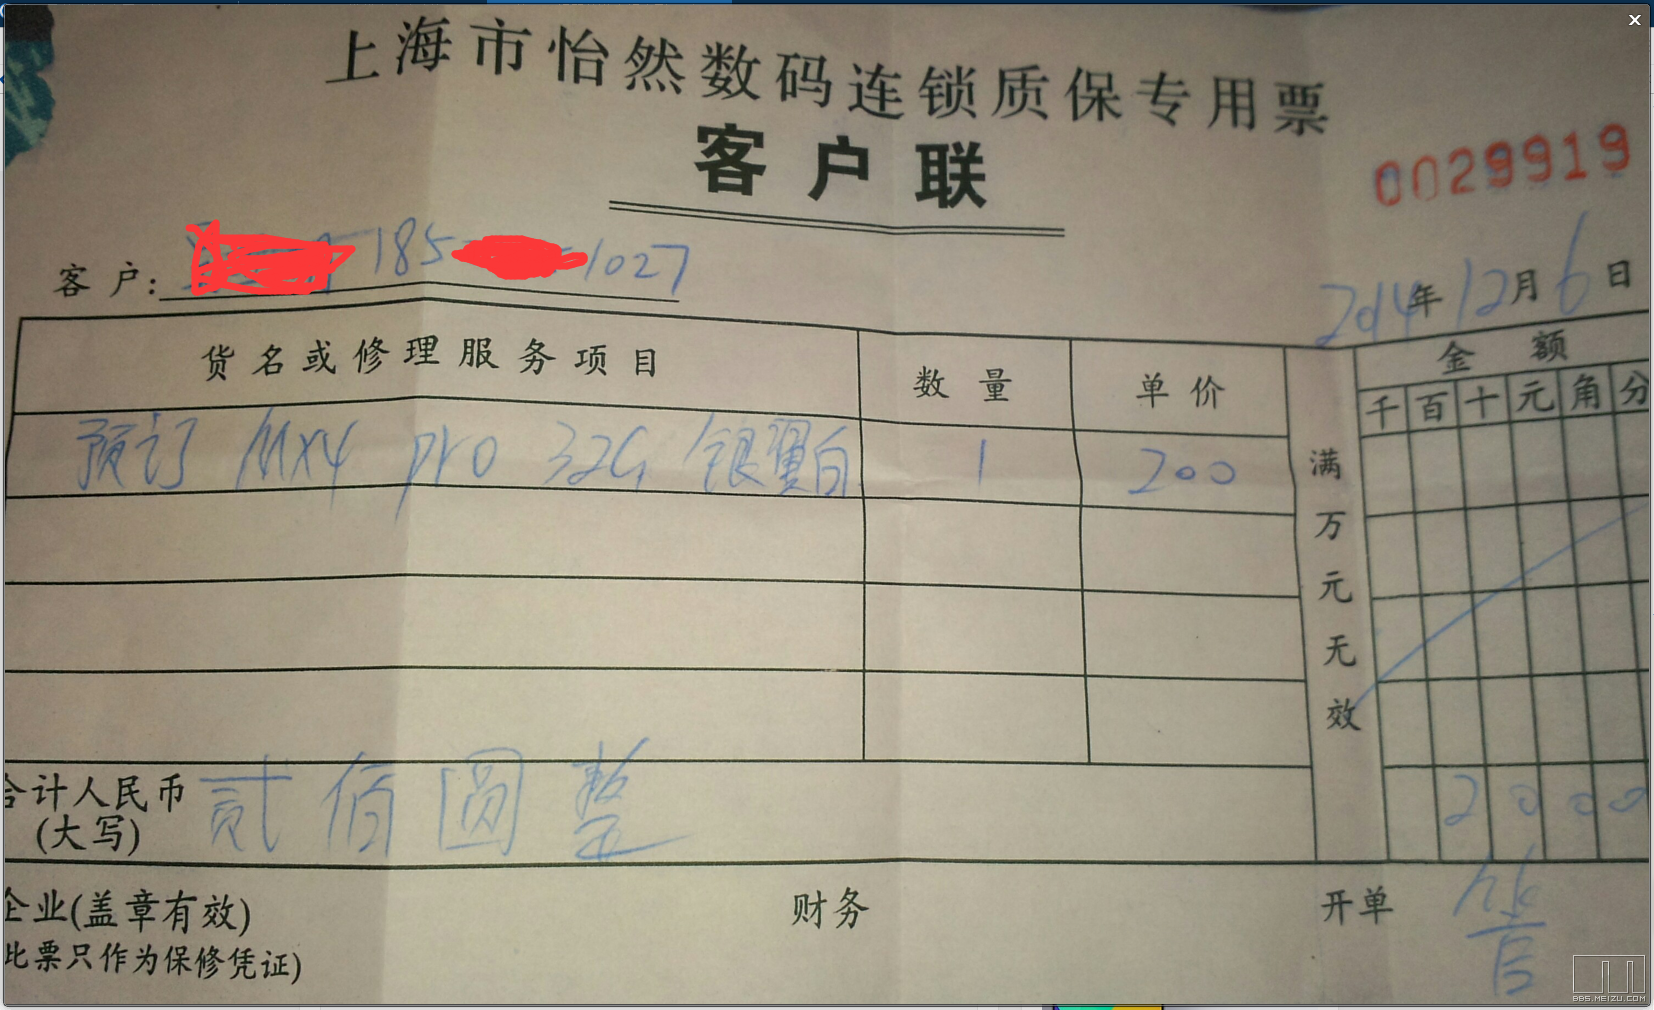 上海市怡然数码连锁质保专用票
客户联
0029919
客户: 185 1027
2014年12月6日
货名或修理服务项目 数量 单价 满万元无效 金额
千百十元角分
预订 MX4 pro 32G 银翼白 1 200
合计人民币 贰佰圆整 20000
(大写)
企业(盖章有效) 财务 开单
此票只作为保修凭证)
BBS.MEIZU.COM